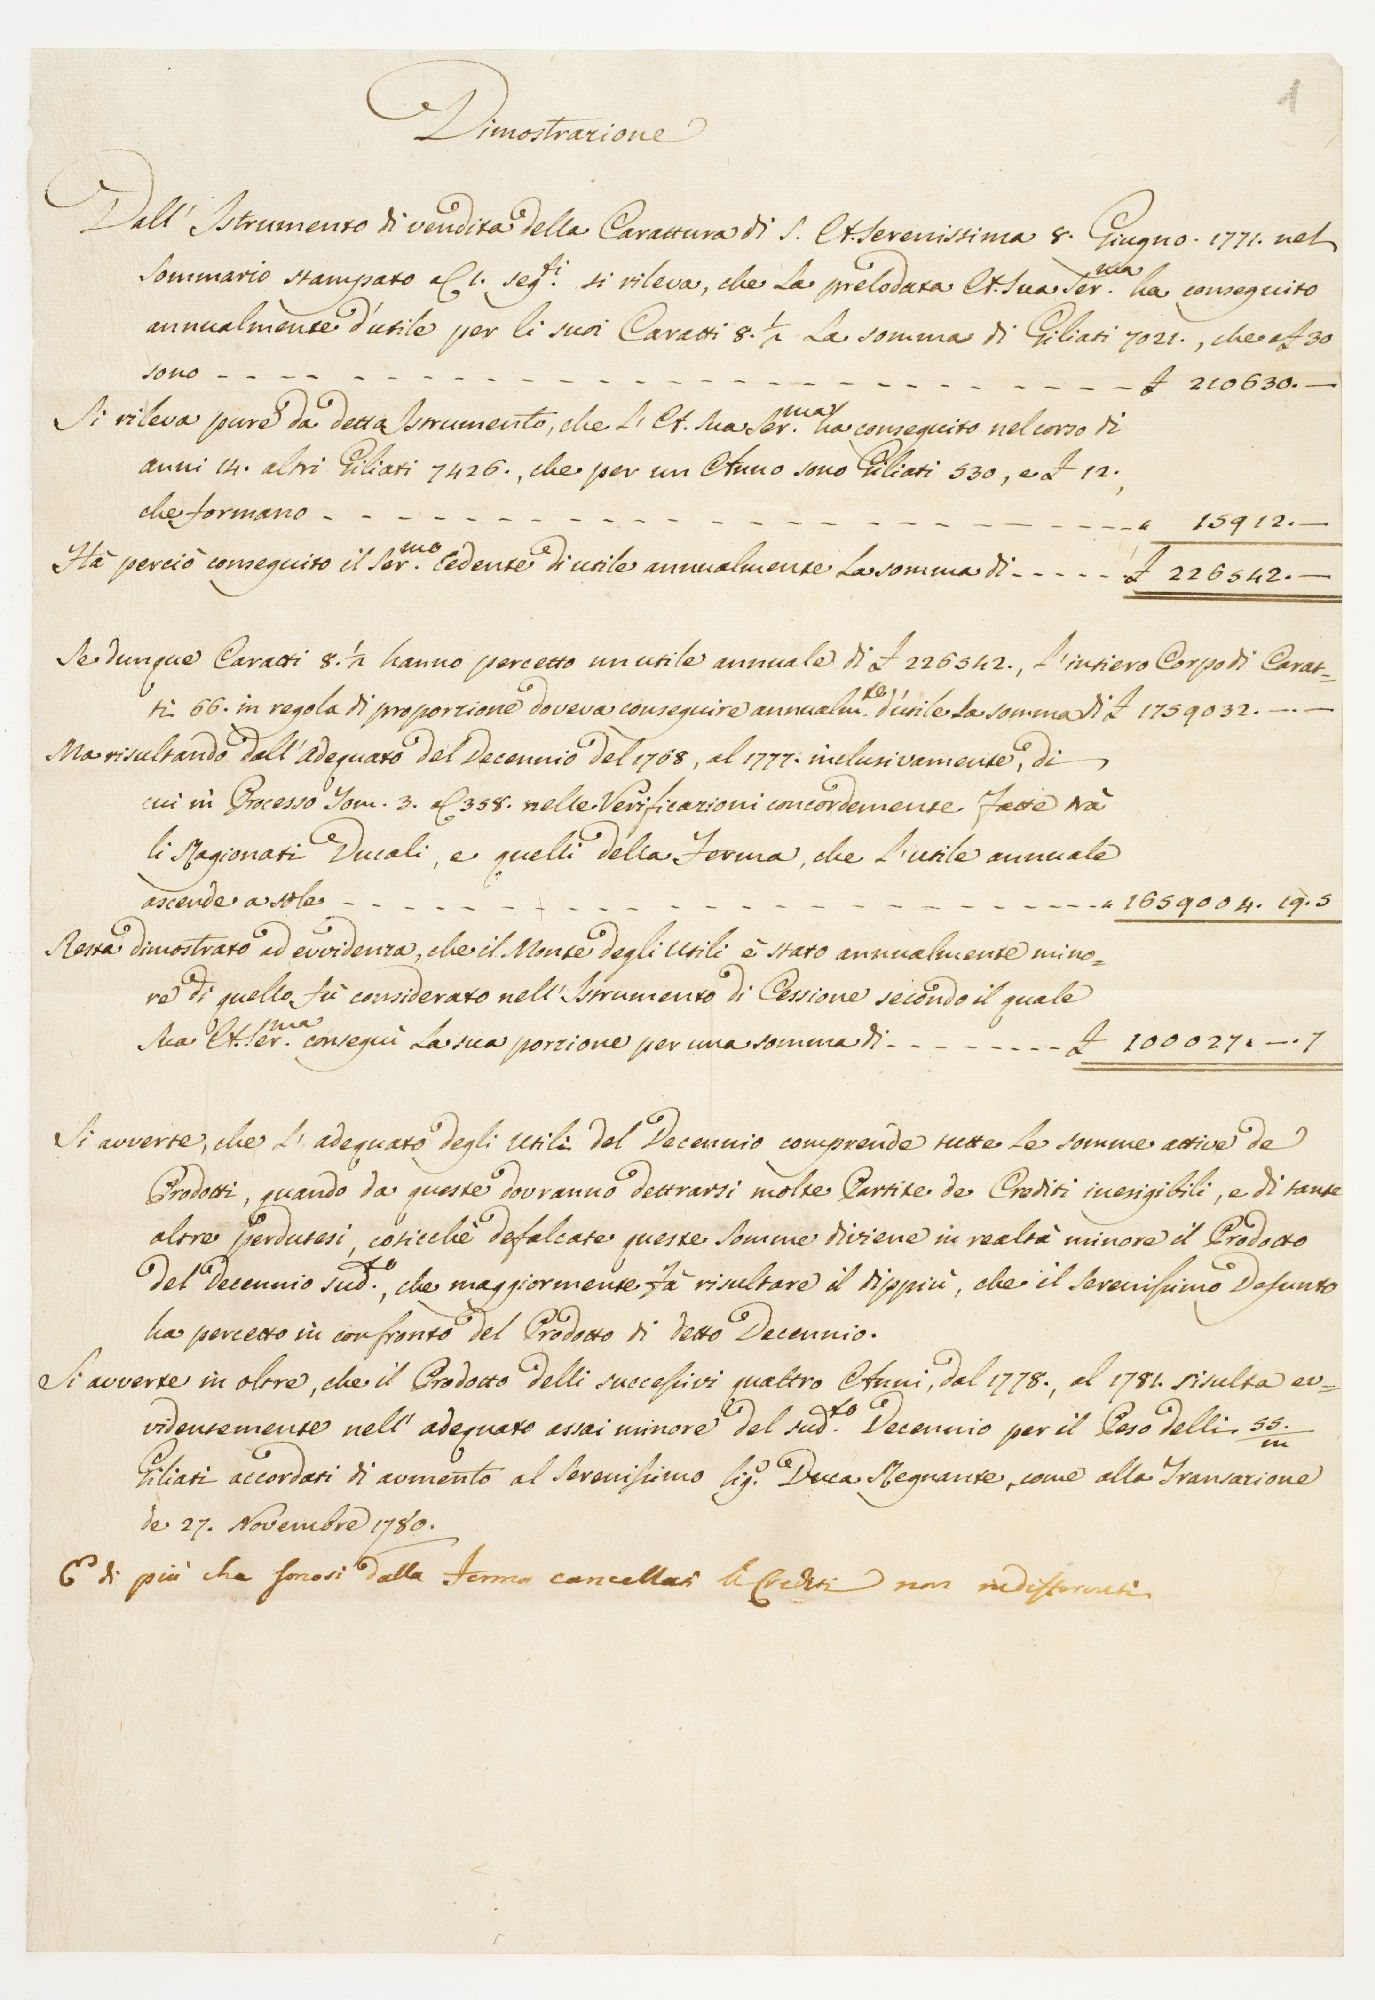 1
Dimostrazione
Dall' Istrumento di vendita della Carattura di S. A. Serenissima 8. Giugno. 1771. nel
Sommario stampato a C. 1. seg.ti si rileva, che La prelodata A. Sua Ser.ma ha conseguito
annualmente d'utile per li suoi Caratti 8. ½ La somma di Giliati 7021., che a £ 30
sono - - - - £ 210630. —
Si rileva pure da detto Istrumento, che L' A. Sua Ser.ma ha conseguito nel corso di
anni 14. altri Giliati 7426., che per un Anno sono Giliati 530, e £ 12.,
che formano - - - - " 15912. —
Hà perciò conseguito il Ser.mo Cedente di utile annualmente La somma di - - - - £ 226542. —
Se dunque Caratti 8. ½ hanno percetto un utile annuale di £ 226542., L'intiero Corpo di Carat=
ti 66. in regola di proporzione doveva conseguire annualm.te d'utile La somma di £ 1759032. — . —
Ma risultando dall' Adequato del Decennio del 1768, al 1777. inclusivamente, di
cui in Processo Tom. 3. a C 358. nelle Verificazioni concordemente fatte trà
li Ragionati Ducali, e quelli della Ferma, che L'utile annuale
ascende a sole - - - - " 1659004. 19. 5
Resta dimostrato ad evvidenza, che il Monte degli Utili è stato annualmente mino=
re di quello fù considerato nell' Istrumento di Cessione secondo il quale
Sua A. Ser.ma conseguì La sua porzione per una somma di - - - - £ 100027. — . 7
Si avverte, che L' adequato degli Utili del Decennio comprende tutte Le somme attive de
Prodotti, quando da queste dovranno dettrarsi molte Partite de Crediti inesigibili, e di tante
altre perdutesi, cosicchè defalcate queste Somme diviene in realtà minore il Prodotto
del Decennio sud.to, che maggiormente fà risultare il dippiù, che il Serenissimo Defunto
ha percetto in confronto del Prodotto di detto Decennio.
Si avverte in oltre, che il Prodotto delli successivi quattro Anni, dal 1778., al 1781. risulta ev=
videntemente nell' adequato assai minore del sud.to Decennio per il Peso delli 55/m
Giliati accordati di aumento al Serenissimo Sig.e Duca Regnante, come alla Transazione
de 27. Novembre 1780.
E di più che sonosi dalla Ferma cancellati li Crediti non indifferenti